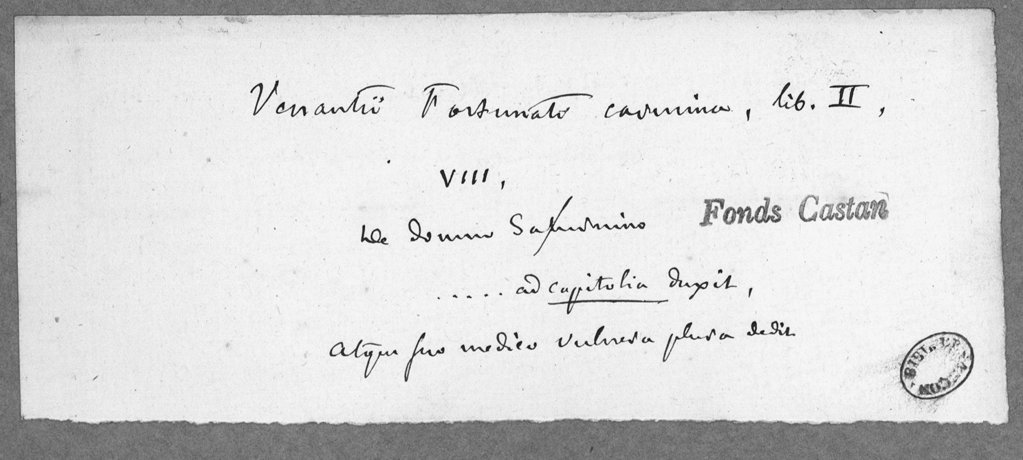 Venantii Fortunati carmina, lib. II,
VIII,
De domno Saturnino
Fonds Castan
..... ad capitolia duxit,
Atque suo medico vulnera plura dedit